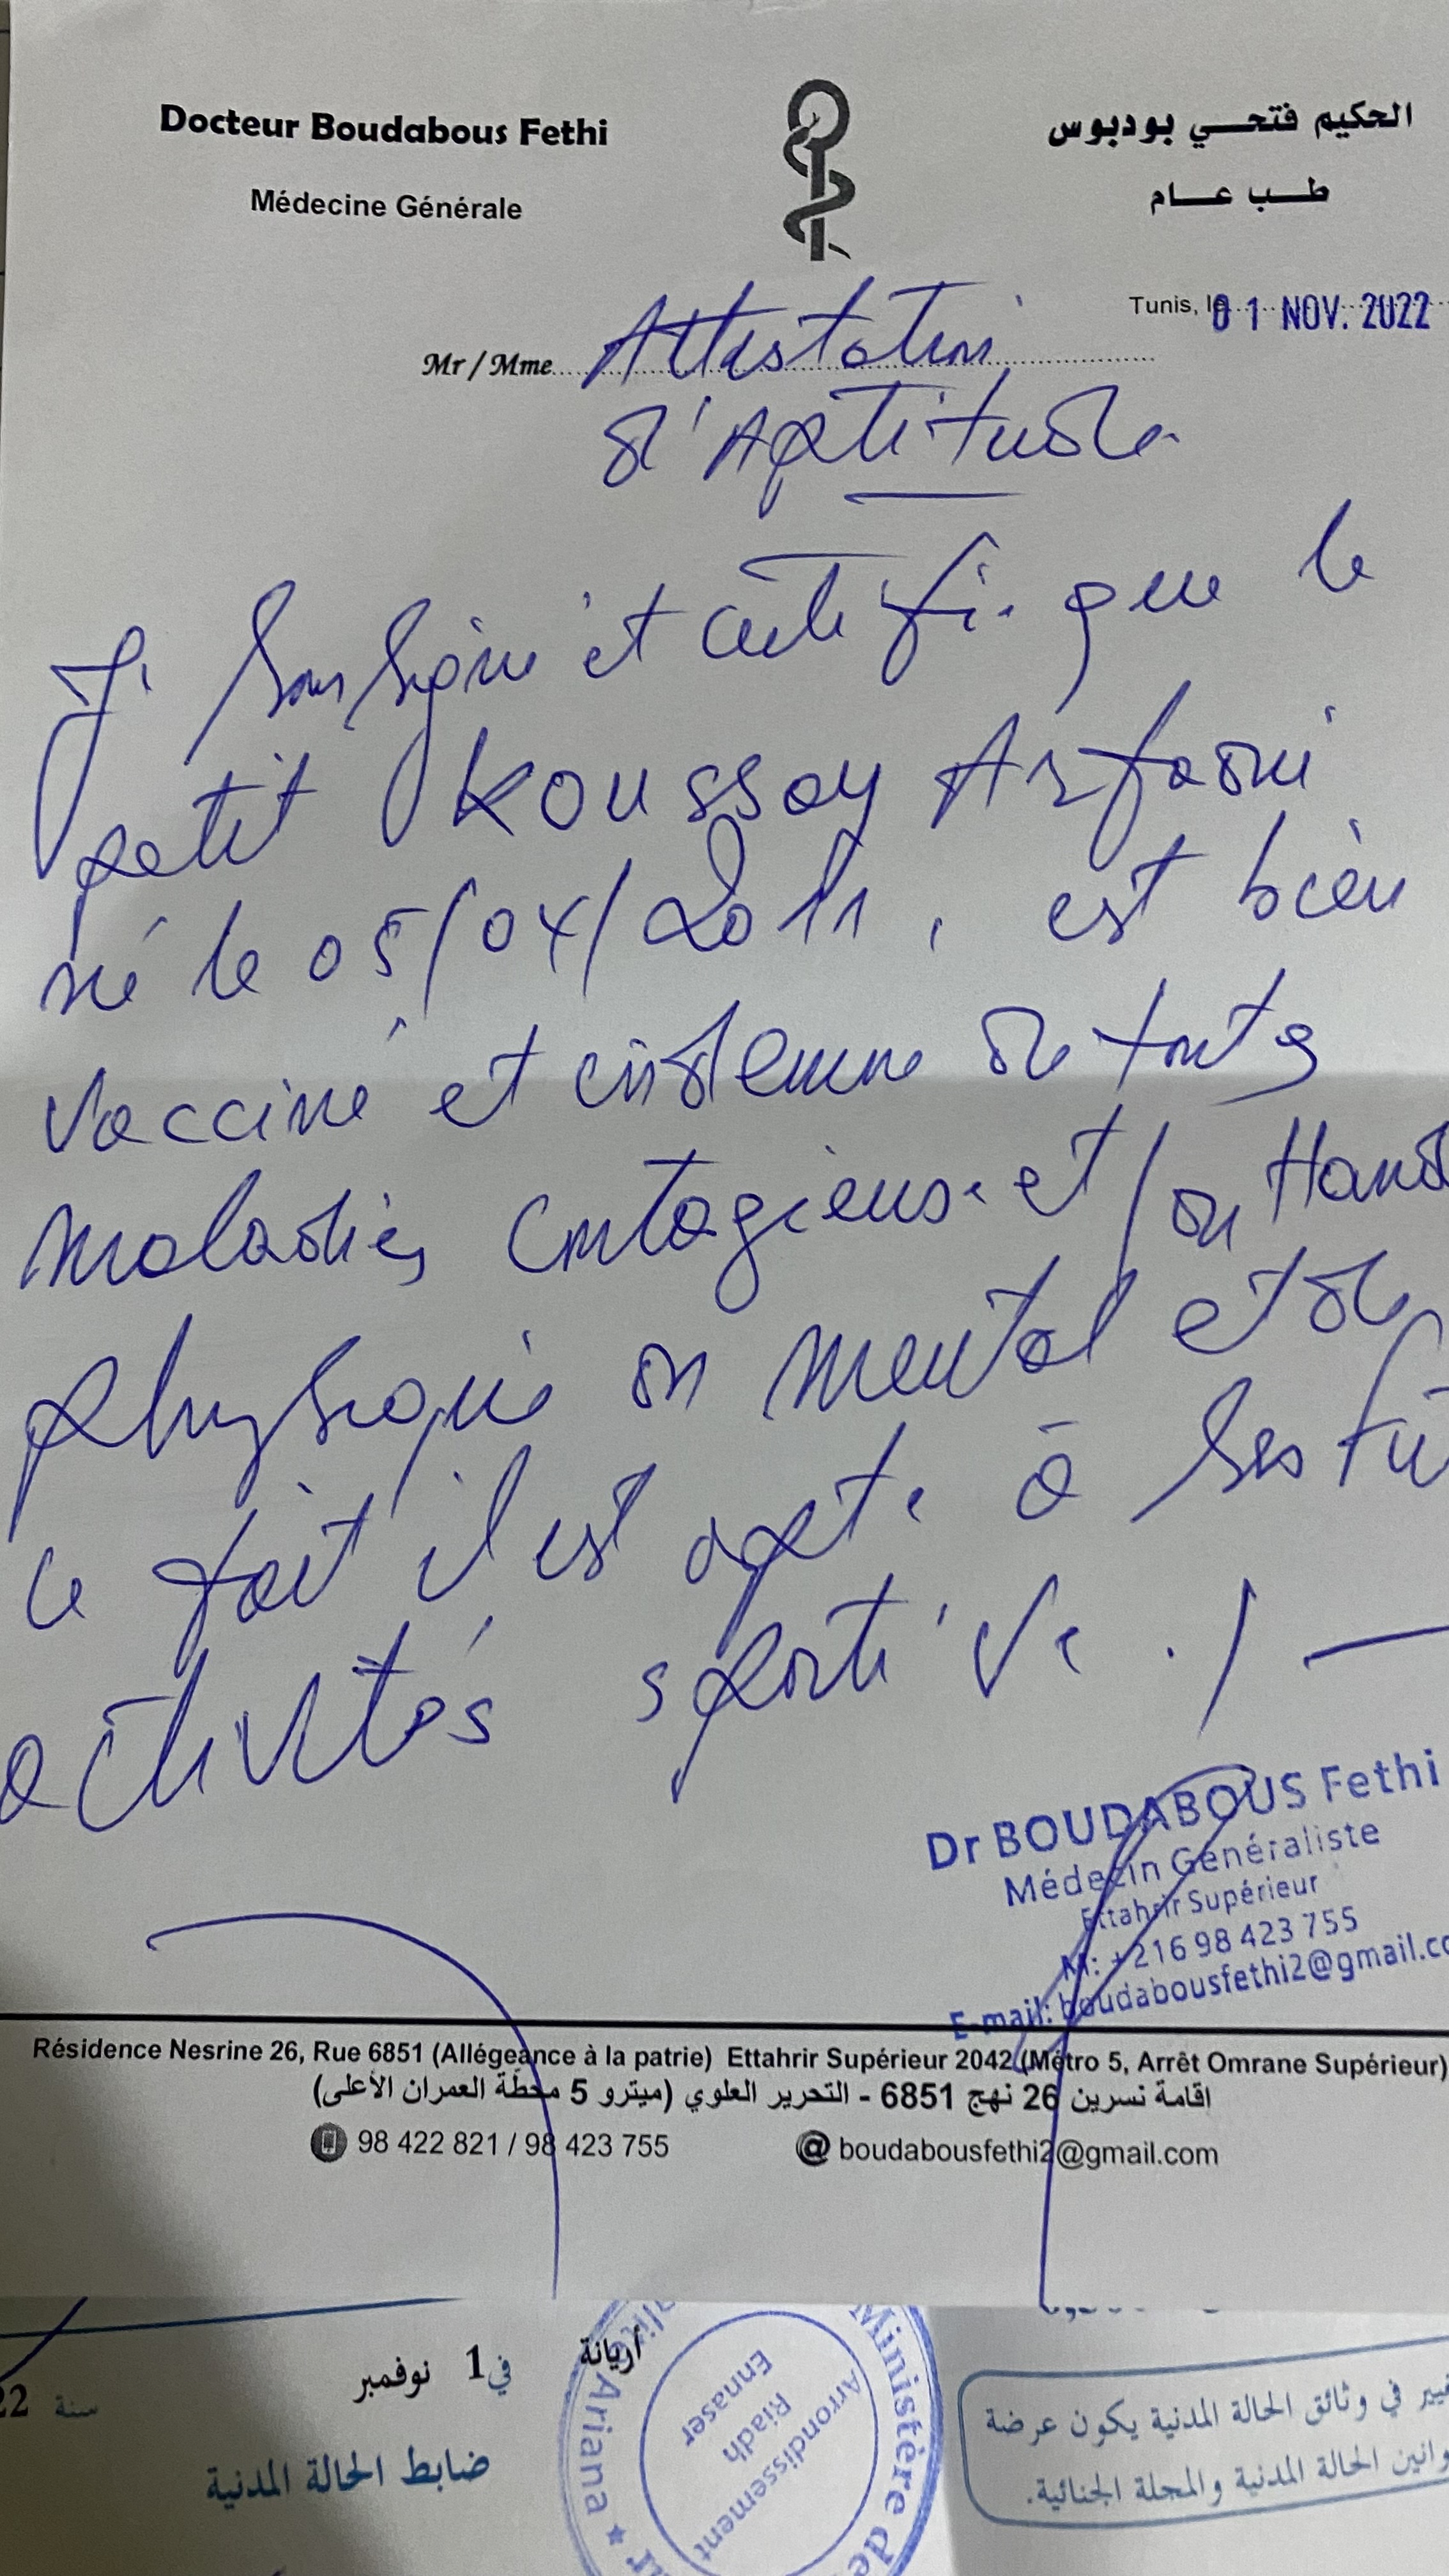 Docteur Boudabous Fethi
Médecine Générale
الحكيم فتحي بودبوس
طب عام
Tunis, le 01 NOV. 2022
Mr / Mme Attestation
d'Aptitude
Je soussigné et certifie que le
petit Koussay Arfaoui
né le 05/04/2011, est bien
vacciné et indemne de toutes
maladies contagieuse et / ou Hand
physique ou mental et de
ce fait il est apte à ses
activités sportive ./—
Dr BOUDABOUS Fethi
Médecin Généraliste
Ettahrir Supérieur
M: +216 98 423 755
E-mail: boudabousfethi2@gmail.co
Résidence Nesrine 26, Rue 6851 (Allégeance à la patrie) Ettahrir Supérieur 2042 (Métro 5, Arrêt Omrane Supérieur)
اقامة نسرين 26 نهج 6851 - التحرير العلوي (ميترو 5 محطة العمران الأعلى)
98 422 821 / 98 423 755 @ boudabousfethi2@gmail.com
أريانة في 1 نوفمبر سنة 22
ضابط الحالة المدنية
Ministère de
Ariana ★
Arrondissement
Riadh
Ennaser
في وثائق الحالة المدنية يكون عرضة
الحالة المدنية والمجلة الجنائية.